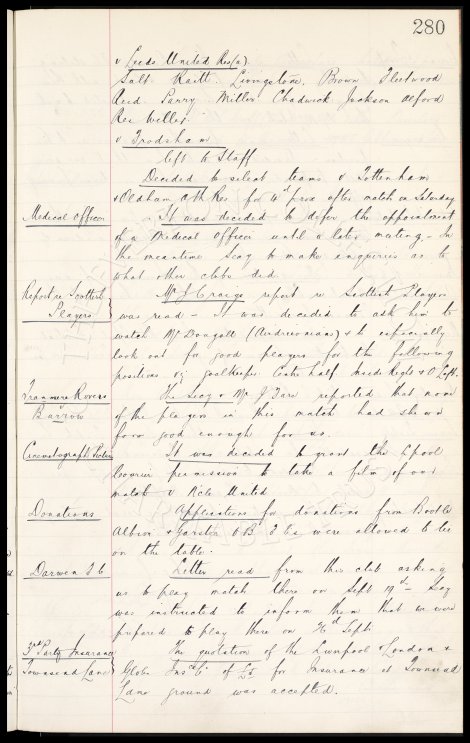 280
v Leeds United Res (a)
Salt Raitt. Livingstone. Brown Fleetwood
Reid. Parry Miller Chadwick Jackson Alford
Res Wells.
v Frodsham
left to Staff
Decided to select teams v Tottenham
& Oldham Ath Res for 16th prox after match on Saturday
Medical Officer
It was decided to defer the appointment
of a Medical Officer until a later meeting - In
the meantime Secy to make enquiries as to
what other clubs did.
Report re Scottish
Players
Mr J Craige report re Scottish Players
was read - It was decided to ask him to
watch Mr Dougall (Airdrieonians) & to especially
look out for good players for the following
positions viz goalkeeper Centre half Inside Right & O Left.
Tranmere Rovers
v
Barrow
The Secy & Mr J Fare reported that none
of the players in this match had shewn
form good enough for us.
Cinematograph
It was decided to grant the Lpool
Courier permission to take a film of our
match v N'cle United
Donations
Applications for donations from Bootle
Albion & Garston O.B. F Cs were allowed to lie
on the table.
Darwen F C
Letter read from this club asking
us to play match there on Sept 19th - Secy
was instructed to inform them that we were
prepared to play there on Sept.
3rd Party Insurance
Townsend Lane
The quotation of the Liverpool & London &
Globe Insce Co of for Insurance at Townsend
Lane ground was accepted.